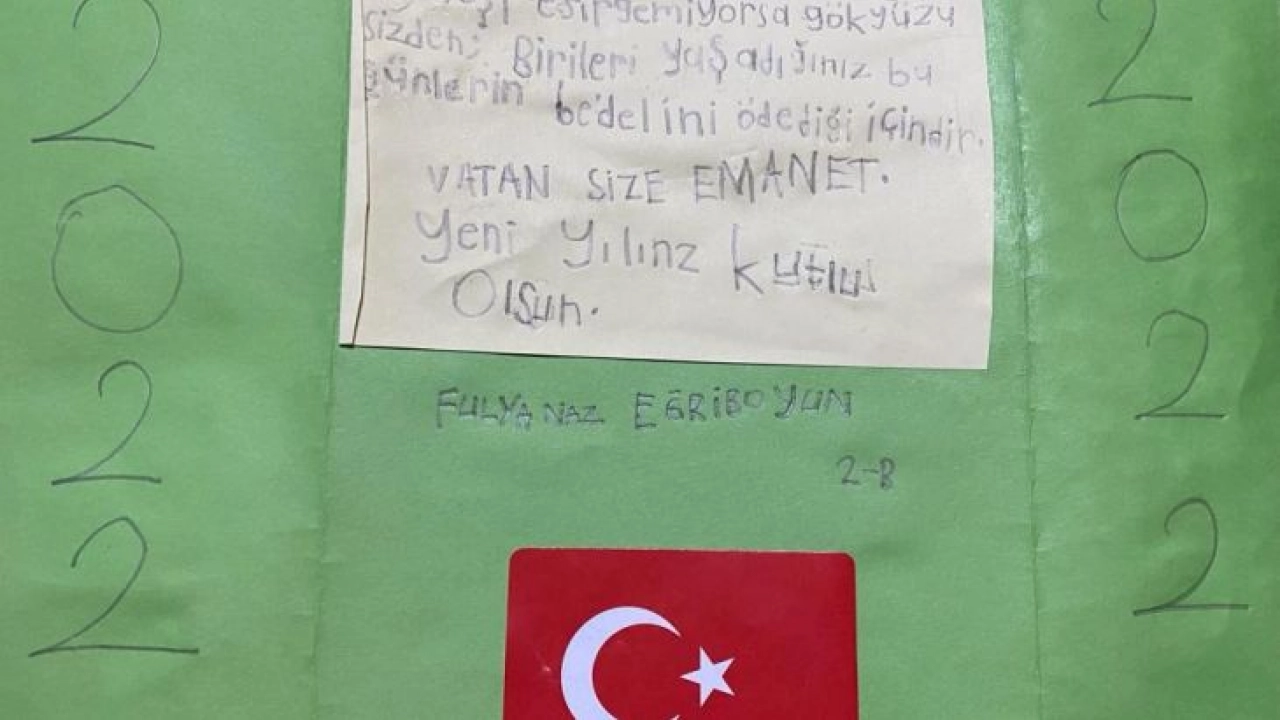 esirgemiyorsa gökyüzü
sizden; Birileri yaşadığınız bu
günlerin bedelini ödediği içindir.
VATAN SİZE EMANET.
Yeni yılınz kutlu
Olsun.
FULYA NAZ EĞRİBOYUN
2-B
2
0
2
2
2
0
2
2